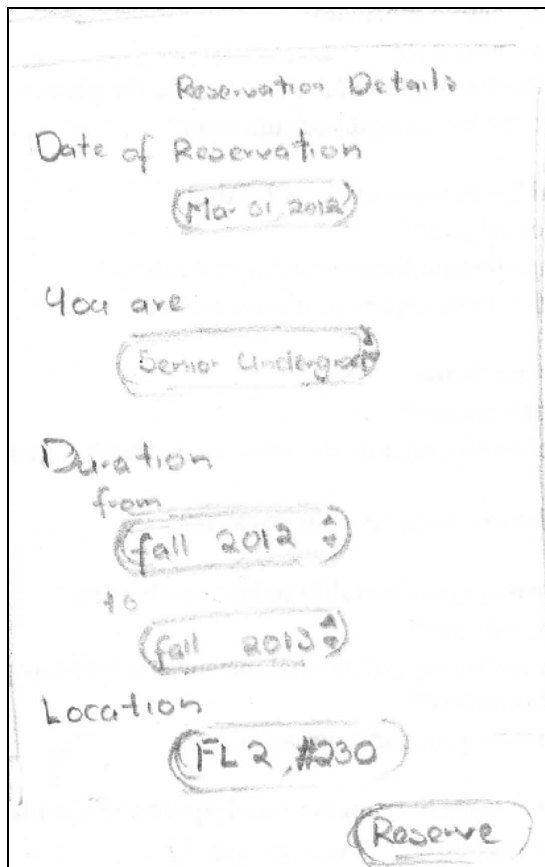 Reservation Details
Date of Reservation
Mar 01, 2012
You are
Senior Undergrad
Duration
from
fall 2012
to
fall 2013
Location
FL 2, #230
Reserve